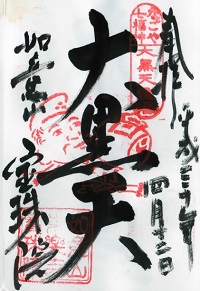 奉拝
平成三十年
四月十二日
なごや
七福神
大黒天
大黒天
如意山
宝珠院